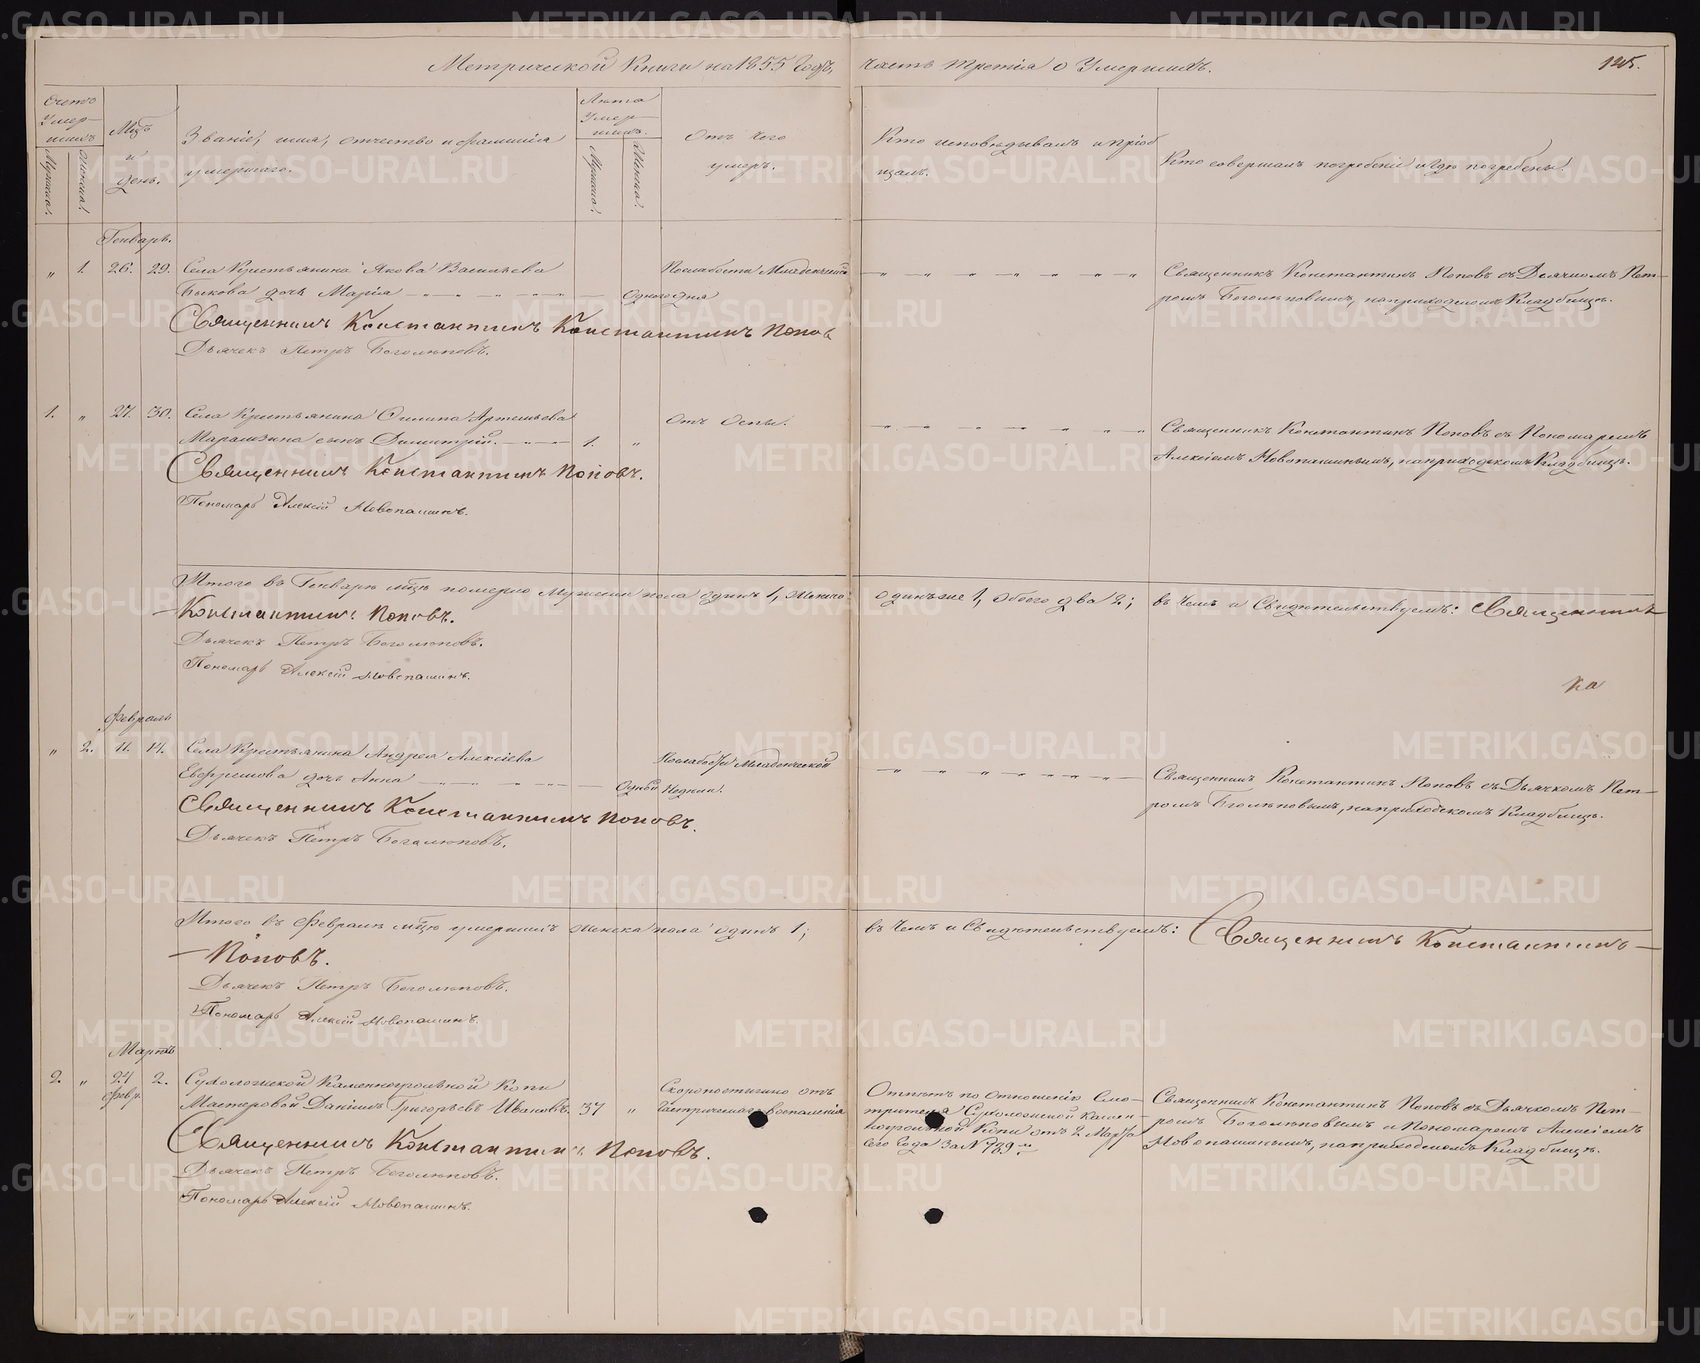 Метрической Книги на 1855 Годъ, часть третія о Умершихъ.
125.
Счетъ Умершихъ
Мужеска.
Женска.
Мѣсяцъ и день.
Званіе, имя, отчество и фамилія умершаго.
Лѣта Умершихъ.
Мужска.
Женска.
Отъ чего умеръ.
Кто исповѣдывалъ и пріобщалъ.
Кто совершалъ погребеніе и гдѣ погребены.
Генварь.
" 1. 26. 29. Села Крестьянина Якова Васильева
Быкова дочь Марія
Одного дня
Послабости Младенческой
Священникъ Константинъ Поповъ съ Дьячкомъ Пет-
ромъ Боголюповымъ, наприходскомъ Кладбищѣ.
Священникъ Константинъ Константинъ Попов
Дьячекъ Петръ Боголюповъ.
1. " 27. 30. Села Крестьянина Филипа Артемьева
сынъ Димитрій. 1. "
Отъ Оспы.
Священникъ Константинъ Поповъ съ Пономаремъ
Алексіемъ Новопашинымъ, наприходскомъ Кладбищѣ.
Священникъ Константинъ Поповъ.
Пономарь Алексій Новопашинъ.
Итого въ Генварѣ мѣсяцѣ померло Мужеска пола одинъ 1, Женска одинъже 1, обоего два 2; въ чемъ и Свидѣтельствуемъ: Священникъ
Константинъ Поповъ.
Дьячекъ Петръ Боголюповъ.
Пономарь Алексій Новопашинъ.
Ка
Февраль
" 2. 11. 14. Села Крестьянина Андрея Алексіева
дочь Анна
Одной Недѣли.
Послабости Младенческой
Священникъ Константинъ Поповъ съ Дьячкомъ Пет-
ромъ Боголюповымъ, наприходскомъ Кладбищѣ.
Священникъ Константинъ Поповъ.
Дьячекъ Петръ Боголюповъ.
Итого въ Февралѣ мѣсяцѣ умершихъ женска пола одинъ 1; въ чемъ и Свидѣтельствуемъ: Священникъ Константинъ
Поповъ.
Дьячекъ Петръ Боголюповъ.
Пономарь Алексій Новопашинъ.
Мартъ
2. " 24 Февр. 2. Сухоложской Каменноугольной Копи
Мастеровой Даніилъ Григорьевъ Ивановъ. 37 "
Скоропостижно отъ
воспаленія
Отпѣтъ по Отношенію Смо-
трителя Сухоложской Камен-
ноугольной Копи отъ 2 Марта
сего Года За № 789
Священникъ Константинъ Поповъ съ Дьячкомъ Пет-
ромъ Боголюповымъ и Пономаремъ Алексіемъ
Новопашинымъ, наприходскомъ Кладбищѣ.
Священникъ Константинъ Поповъ.
Дьячекъ Петръ Боголюповъ.
Пономарь Алексій Новопашинъ.
METRIKI.GASO-URAL.RU